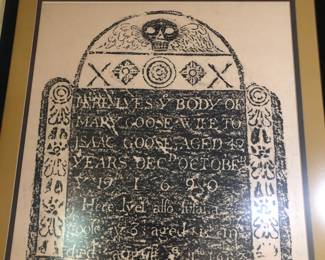 HERE LYES Y BODY OF
MARY GOOSE WIFE TO
ISAAC GOOSE, AGED 42
YEARS DECD OCTOBER
19 1 6 9 0
Here lyes also
goose ye aged 15 m
died